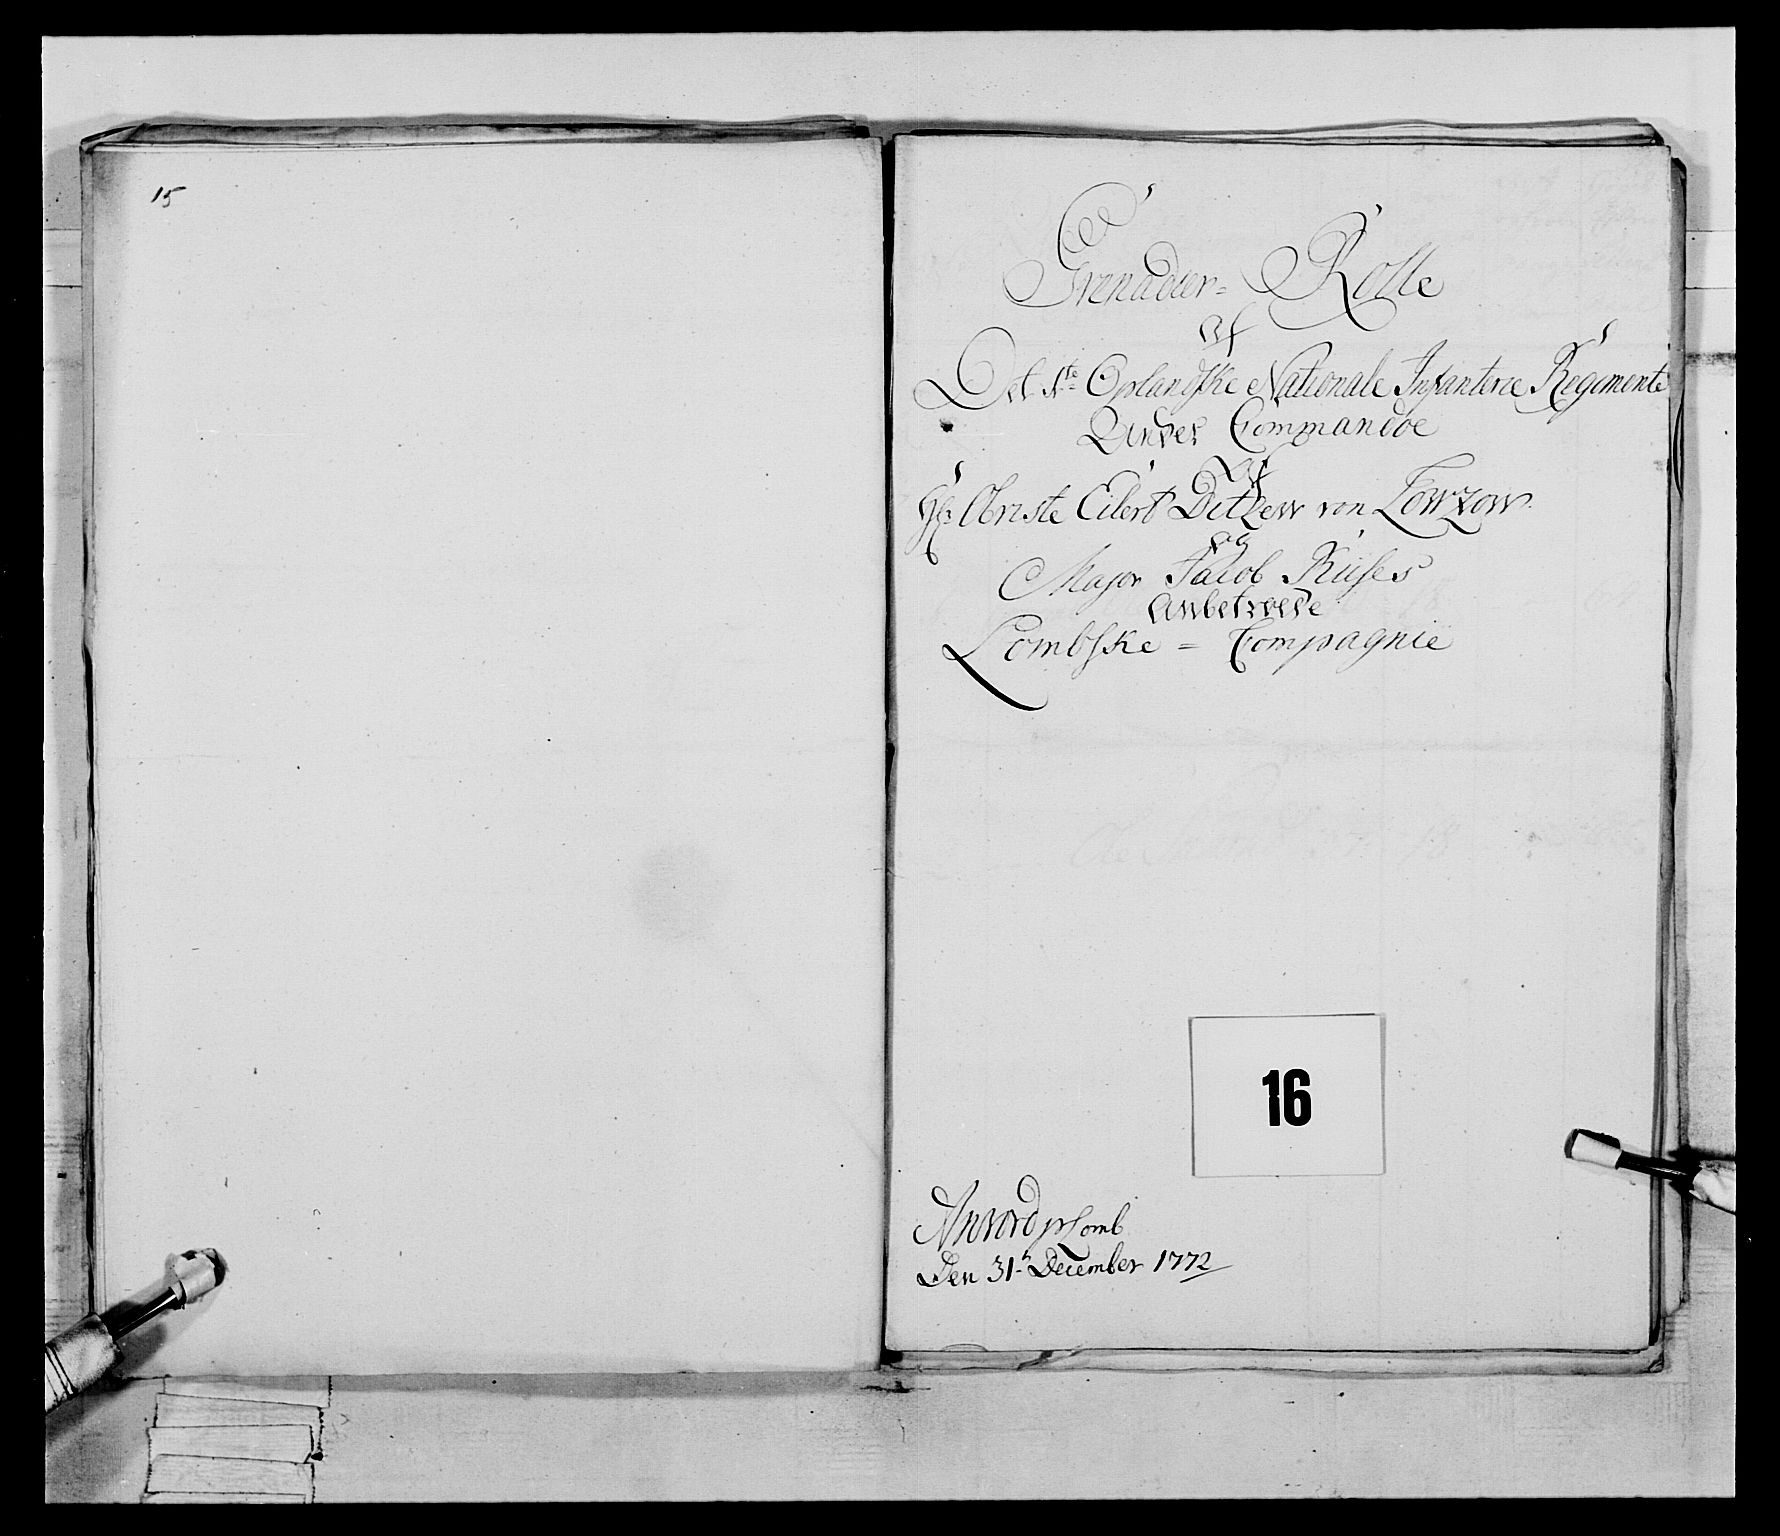 15
Grenadier= Rolle
Af
Det 1te Oplandske Nationale Infanterie Regiment
Under Commandoe
Af
Hr: Obriste Eilert Ditlew von Lowzow
og
Major Jacob Rüses
anbetroede
Lombske = Compagnie
16
Lomb
Den 31te December 1772